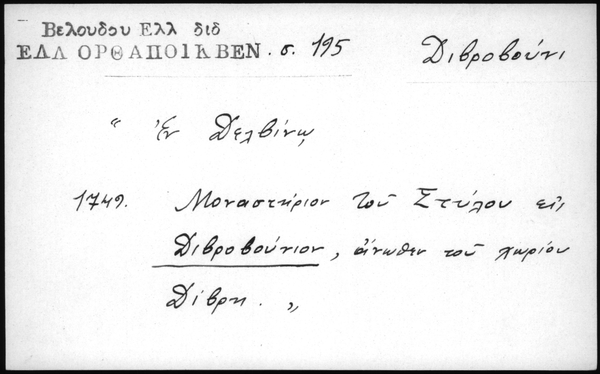 Βελουδου Ελλ διδ
ΕΛΛ ΟΡΘΑΠΟΙΚΒΕΝ. σ. 195
Διβροβούνι
“ Ἐν Δελβίνῳ
1749. Μοναστήριον τοῦ Στύλου εἰς
Διβροβούνιον, ἄνωθεν τοῦ χωρίου
Δίβρη. „